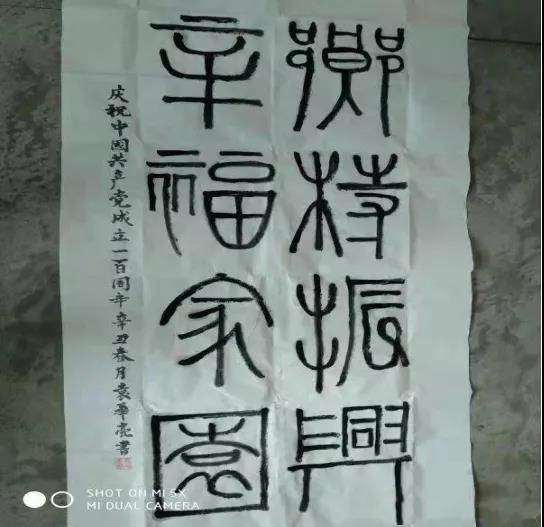 鄉村振興
幸福家園
庆祝中國共产党成立一百周年辛丑春月袁華亮書
SHOT ON MI 5X
MI DUAL CAMERA